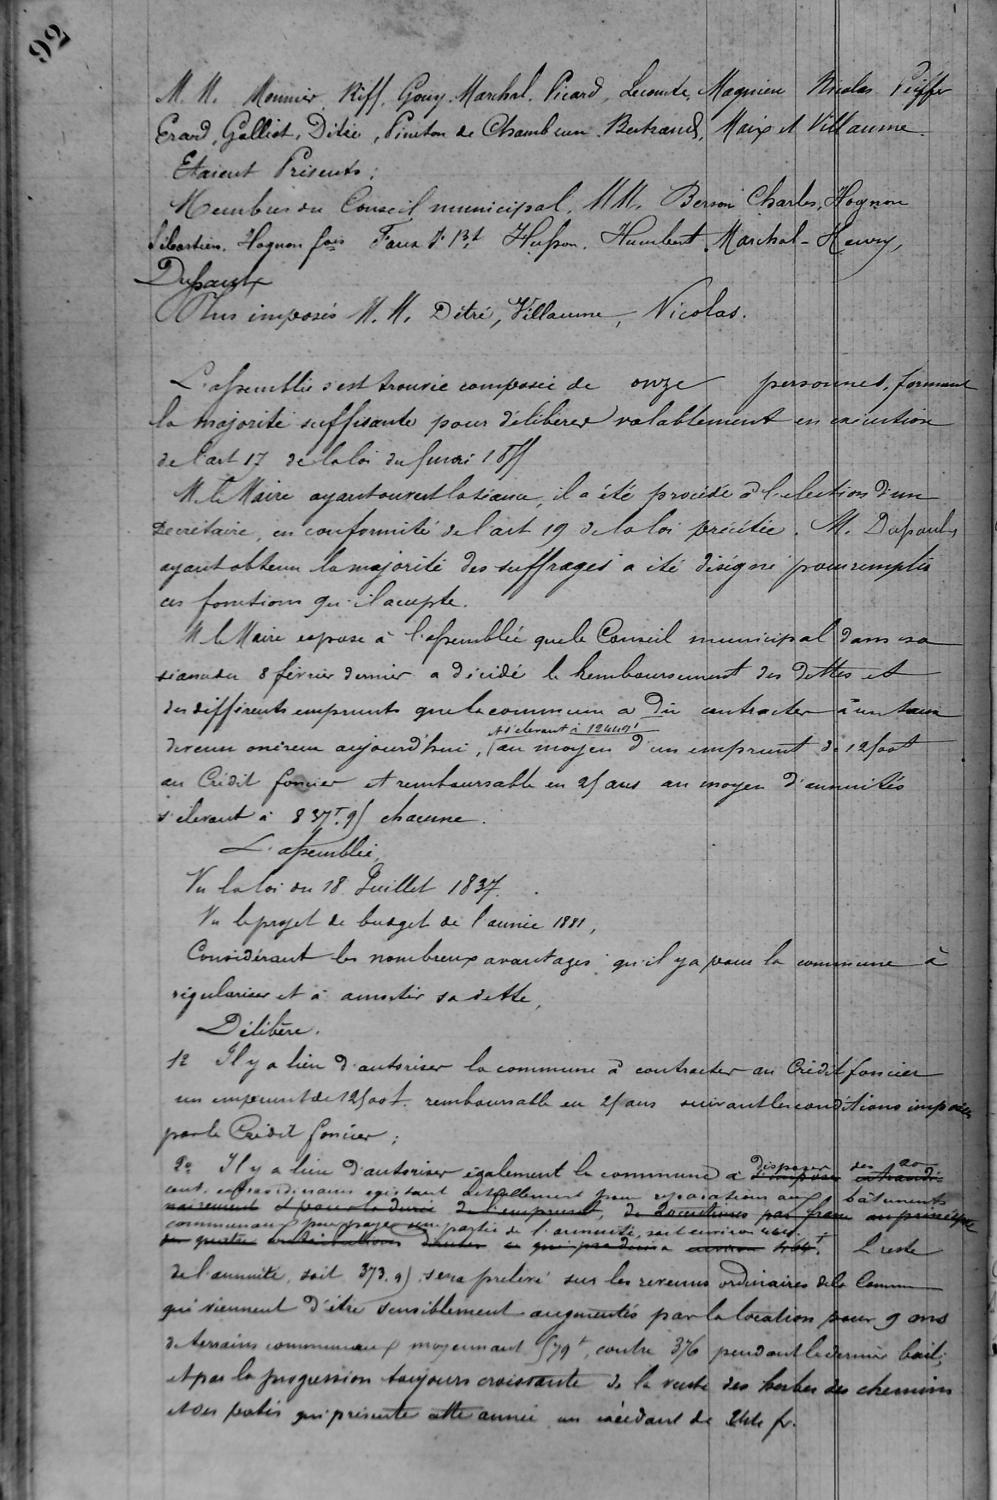 92
M. M. Monnier, Riff, Gouy, Marchal, Picard, Lecomte, Magnien Nicolas Peiffer
Erard, Galliot, Ditrée, Pinston de Chambrun Bertrand, Maix et Villaume.
Etaient Présents;
Membres du Conseil municipal, MM. Berson Charles, Hognon
Sébastien, Hognon fois Husson, Humbert, Marchal-Henry,
Plus imposés M. M. Détré, Villaume, Nicolas.
L'assemblée s'est trouvée composée de onze personnes, formant
la majorité suffisante pour délibérer valablement en exécution
de l'art 17 de la loi du 5 mai 1855
M. le Maire ayant ouvert la séance, il a été procédé à l'election d'un
Secrétaire, en conformité de l'art 19 de la loi précitée. M.
ayant obtenu la majorité des suffrages a été désigné pour remplir
ces fonctions qu'il accepte.
M le Maire expose à l'assemblée que le Conseil municipal dans sa
séance du 8 février dernier a décidé le remboursement des dettes et
des différents emprunts que la commune a dû contracter à un taux
s'élevant à 12449f
devenu onéreux aujourd'hui, au moyen d'un emprunt de 12500f
au Crédit foncier et remboursable en 25 ans au moyen d'annuités
s'élevant à 837f.95 chacune.
L'assemblée,
Vu la loi du 18 Juillet 1837.
Vu le projet de budget de l'année 1881,
Considérant les nombreux avantages qu'il y a pour la commune à
régulariser et à amortir sa dette,
Délibère.
1º Il y a lieu d'autoriser la commune à contracter au Crédit foncier
un emprunt de 12500f. remboursable en 25 ans suivant les conditions imposées
par le Crédit foncier;
2º Il y a lieu d'autoriser également la commune à disposer des
cent. extraordinaires existant actuellement pour réparations aux bâtiments
communaux pour payer une partie de l'annuité, soit environ 464f. Le reste
de l'annuité, soit 373.95 sera prélevé sur les revenus ordinaires de la Commune
qui viennent d'être sensiblement augmentés par la location pour 9 ans
de terrains communaux moyennant 579f, contre 376 pendant le dernier bail;
et par la progression toujours croissante de la vente des herbes des chemins
et des patis qui présente cette année un excédant de 244 fr.